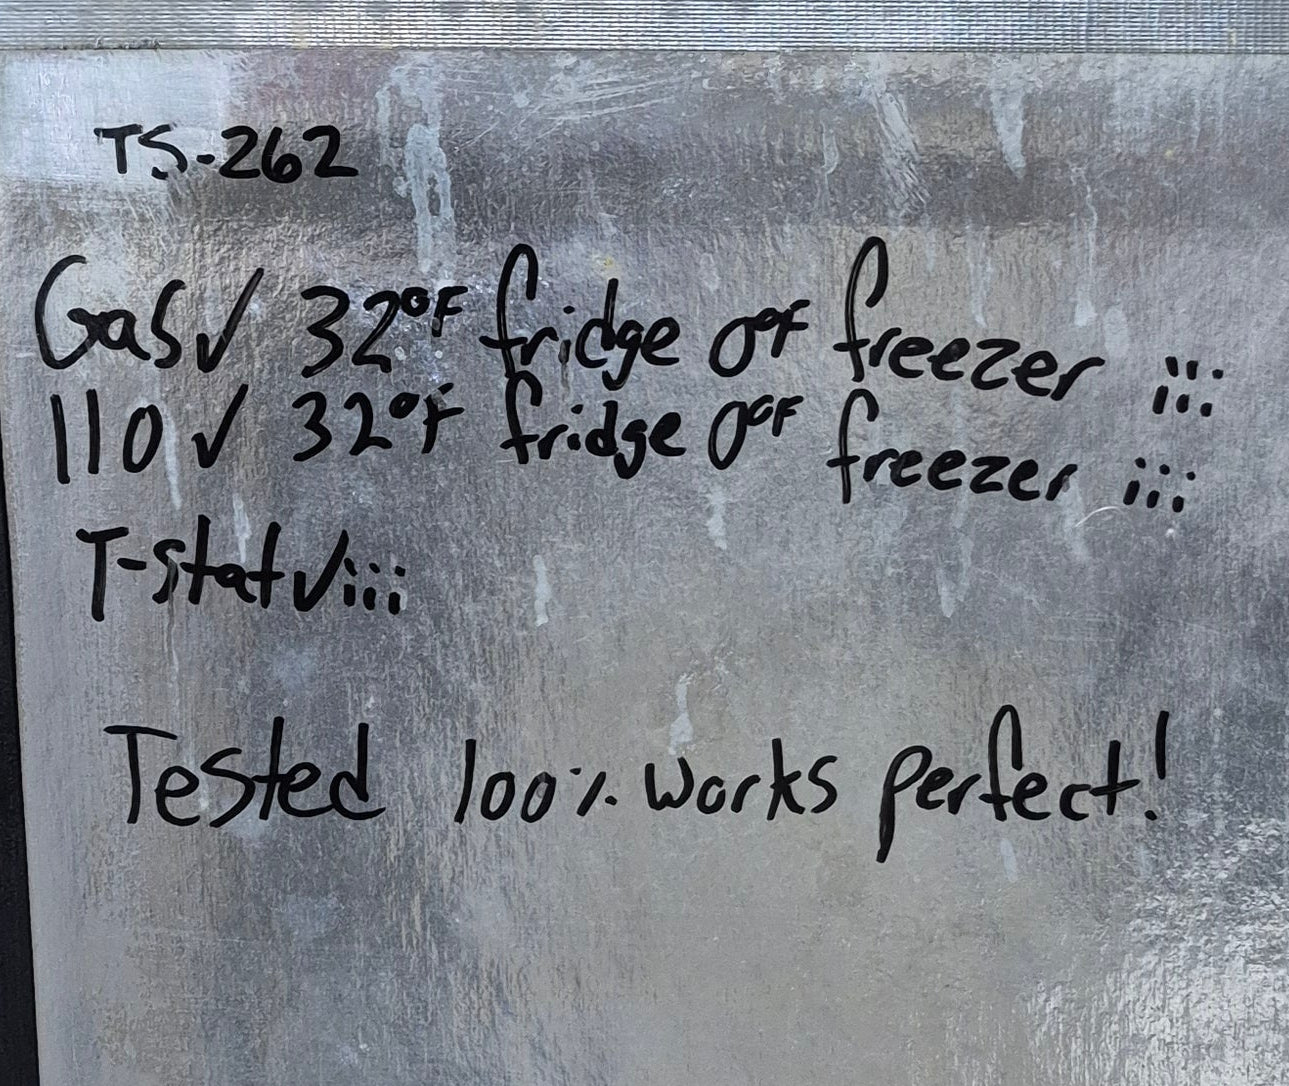 TS-262
Gas✓ 32°F fridge 0°F freezer iii
110✓ 32°F fridge 0°F freezer iii
T-stat✓iii
Tested 100% works perfect!